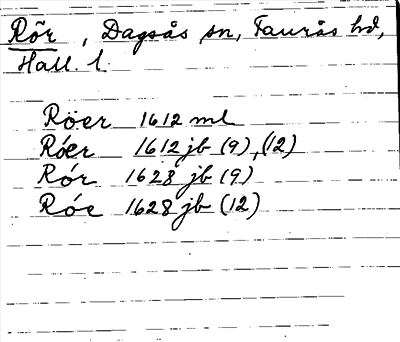 Rör, Dagsås sn, Faurås hd,
Hall. l.
Röer 1612 ml
Róer 1612 jb (9), (12)
Rór 1628 jb (9)
Róe 1628 jb (12)